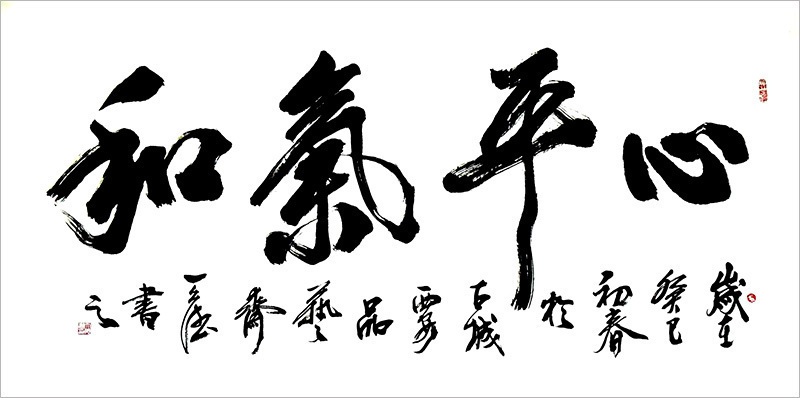 心平氣和
歲在癸巳初春於古城西安品藝齋一書之